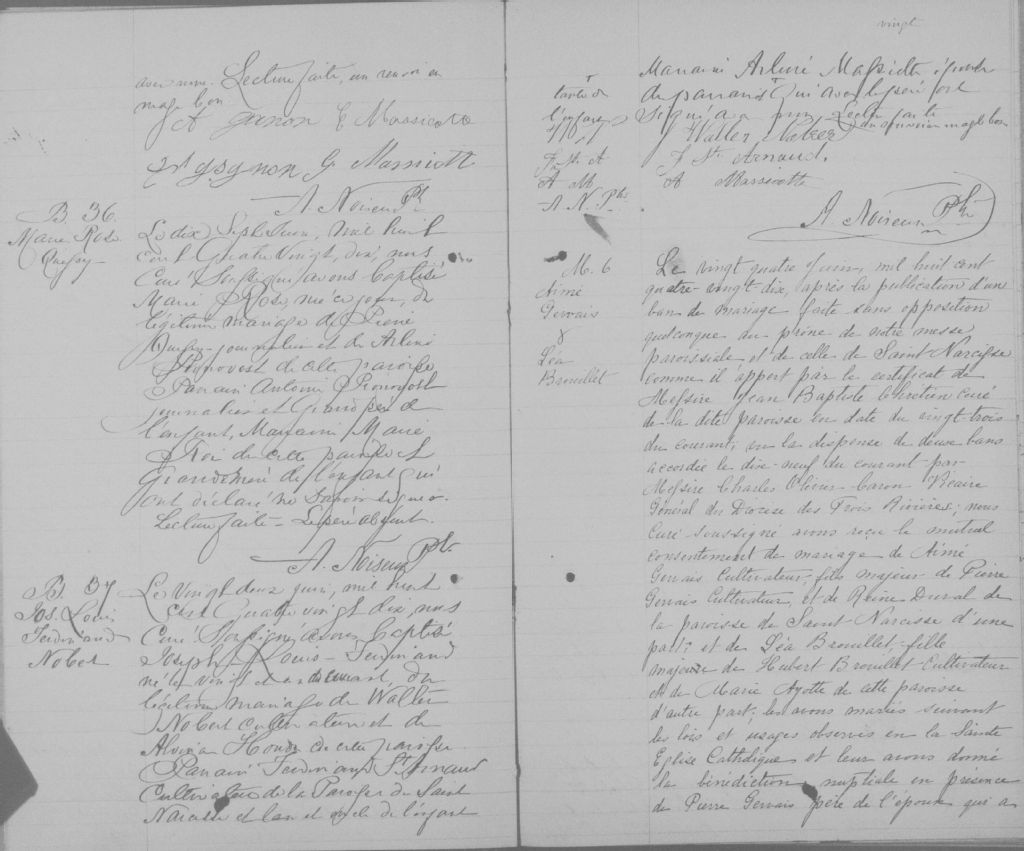 avec nous. Lecture faite, un renvoi en
marge bon
A Gagnon E Massicotte
G. Massicotte
A. Noiseux Ptr
B 36.
Marie Rose
Quessy
Le dix Sept Juin, mil huit
cent Quatre vingt dix, nous
Curé Soussigné avons baptisé
Marie Rose née ce jour, du
légitime mariage de Pierre
Quessy journalier et de Arline
Pronovost de cette paroisse
Parrain Antoine Pronovost
journalier et Grand père de
l'enfant, Marraine Marie
Roi de cette paroisse et
Grandemère de l'enfant qui
ont déclaré ne savoir signer.
Lecture faite - Le père absent.
A. Noiseux Ptr
B. 37
Jos. Louis
Ferdinand
Nobert
Le Vingt deux juin, mil huit
cent Quatre vingt dix, nous
Curé Soussigné avons baptisé
Joseph Louis Ferdinand
né le vingt et un du courant, du
légitime mariage de Walter
Nobert cultivateur et de
Alvina Houde de cette paroisse
Parrain Ferdinand St Arnaud
Cultivateur de la Paroisse de Saint
Narcisse et oncle de l'enfant
vingt
Marraine Arline Massicotte épouse
du parrain qui avec le père ont
signé avec nous Lecture faite
un renvoi en marge bon
tante de
l'enfant
W N
F St. A
A M
A. N. Ptr
Walter Nobert
F St. Arnaud.
A Massicotte
A. Noiseux Ptr
M. 6
Aimé
Gervais
&
Léa
Brouillet
Le vingt quatre Juin, mil huit cent
quatre-vingt-dix, après la publication d'un
ban de mariage faite sans opposition
quelconque au prône de notre messe
paroissiale et de celle de Saint-Narcisse
comme il appert par le certificat de
Messire Jean Baptiste Chrétien curé
de la dite paroisse en date du vingt-trois
du courant; vu la dispense de deux bans
accordée le dix-neuf du courant par
Messire Charles Olivier Caron Vicaire
Général du Diocèse des Trois Rivières; nous
Curé soussigné avons reçu le mutuel
consentement de mariage de Aimé
Gervais Cultivateur, fils majeur de Pierre
Gervais Cultivateur, et de Reine Duval de
la paroisse de Saint-Narcisse d'une
part; et de Léa Brouillet, fille
majeure de Hubert Brouillet Cultivateur
et de Marie Ayotte de cette paroisse
d'autre part; les avons mariés suivant
les lois et usages observés en la Sainte
Eglise Catholique et leur avons donné
la bénédiction nuptiale en présence
de Pierre Gervais père de l'époux qui a